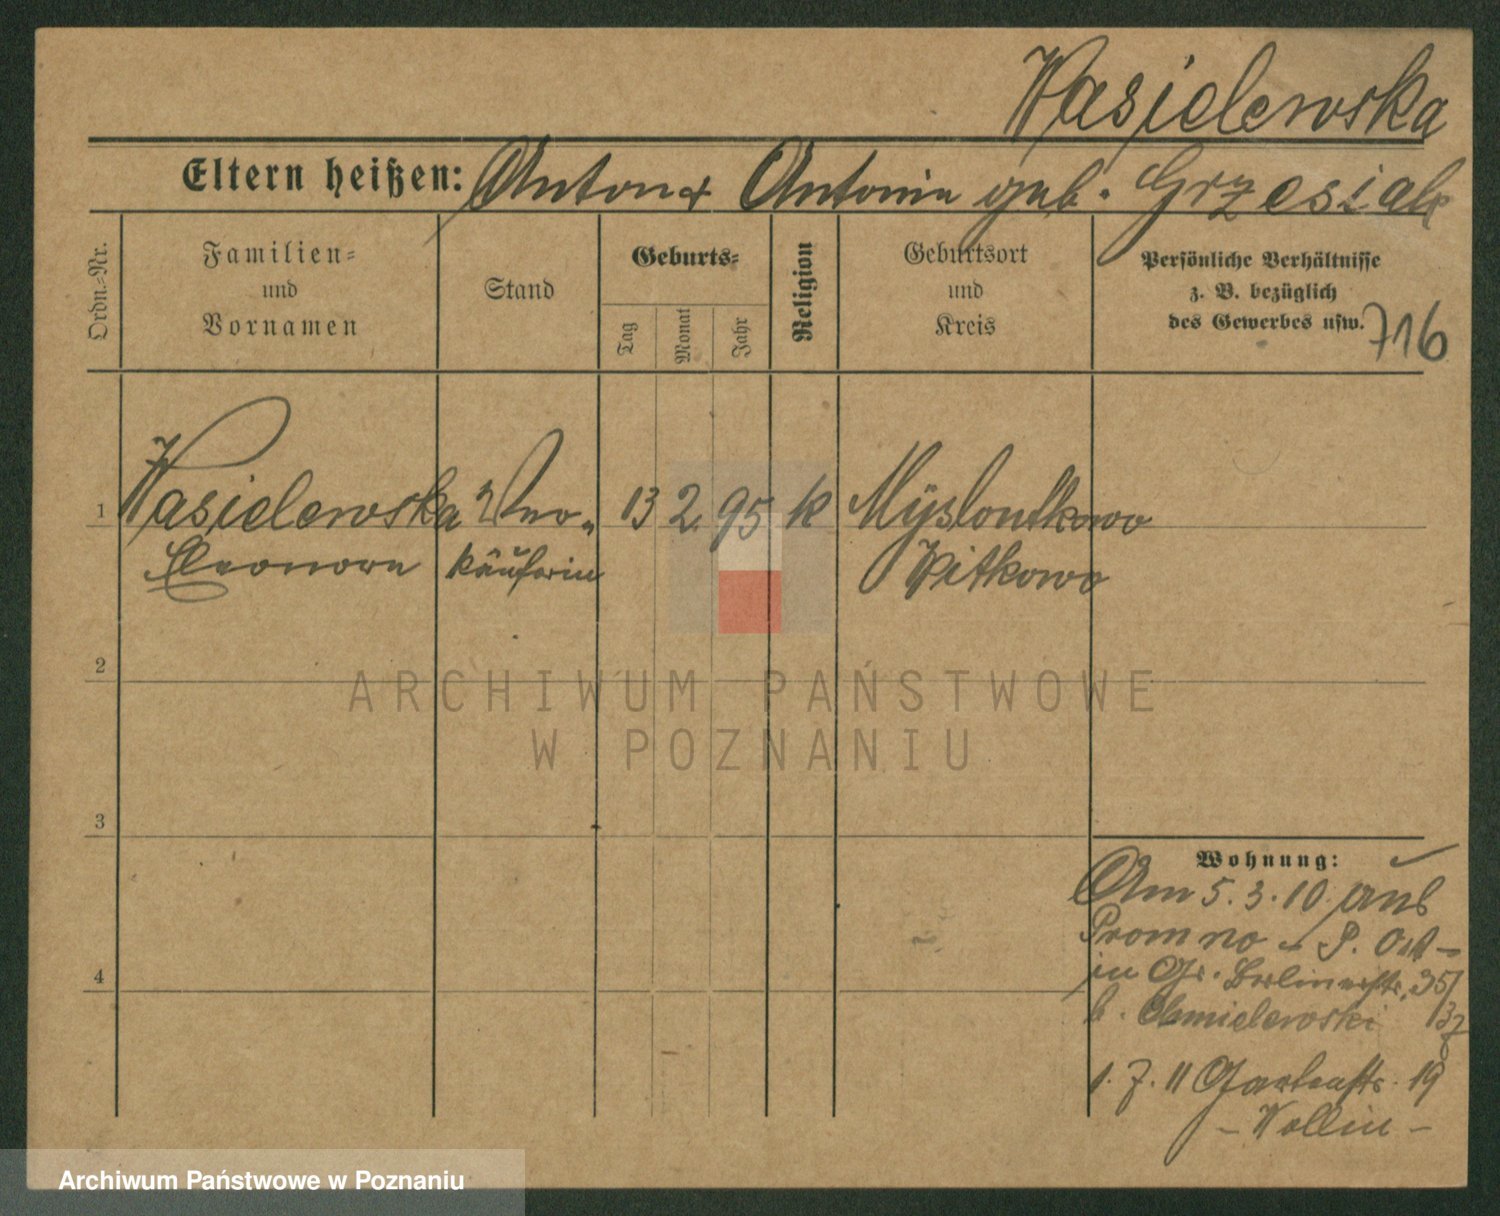 Wasielewska
Eltern heißen: Anton & Antonie geb. Grzesiak
Ordn.-Nr.
Familien-
und
Vornamen
Stand
Geburts-
Tag
Monat
Jahr
Religion
Geburtsort
und
Kreis
Persönliche Verhältnisse
z. B. bezüglich
des Gewerbes usw.
716
1 Wasielewska Ver- 13 2. 95 k Mÿsloutkowo
Eleonore käuferin Witkowo
2
3
4
Wohnung:
Am 5. 3. 10 aus
Promno - P. Ost -
in Gr. Berlinerstr. 35/
b. Chmielewski 37
1. 7. 11 Gartenstr. 19
- Wollin -
ARCHIWUM PAŃSTWOWE
W POZNANIU
Archiwum Państwowe w Poznaniu